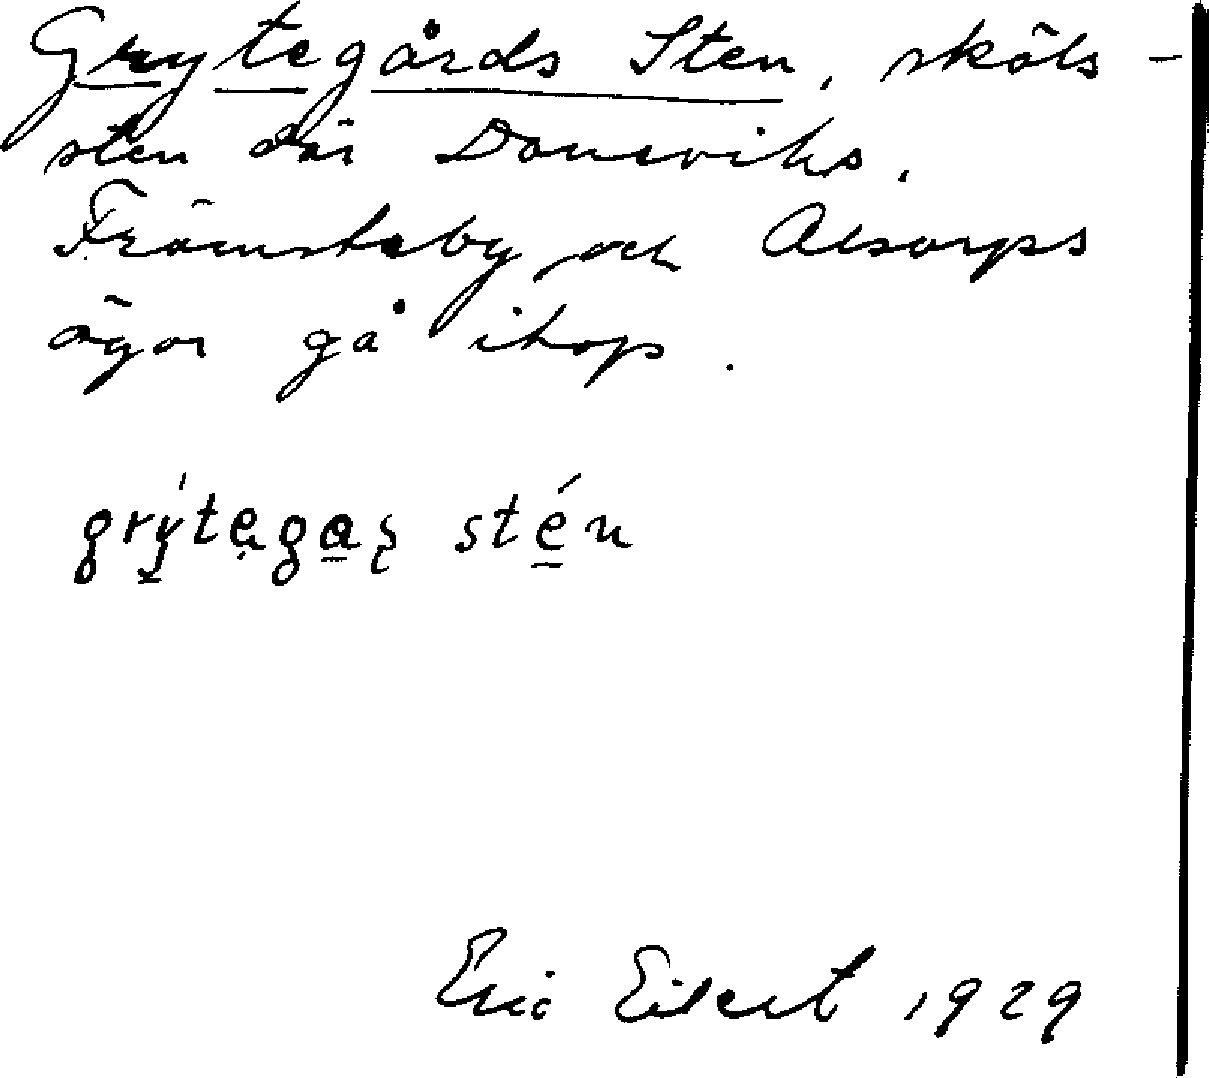 Grytegårds Sten, sköls-
sten där Donsviks,
Främsteby och Alsarps
ägor gå ihop.
grýtegaʂ stén
Eric Eilert 1929